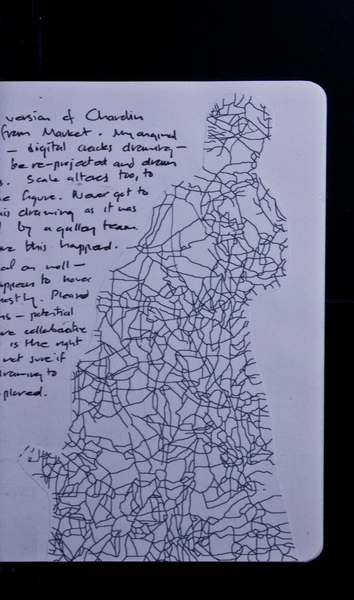 version of Chardin
from Market. My original
— digital cracks drawing —
be re-projected and drawn
s. Scale alters too, to
e figure. Never got to
is drawing as it was
by a gallery team
this happened.
on wall —
appears to hover
mostly. Pleased
— potential
collaborative
is the right
not sure if
drawing to
plored.